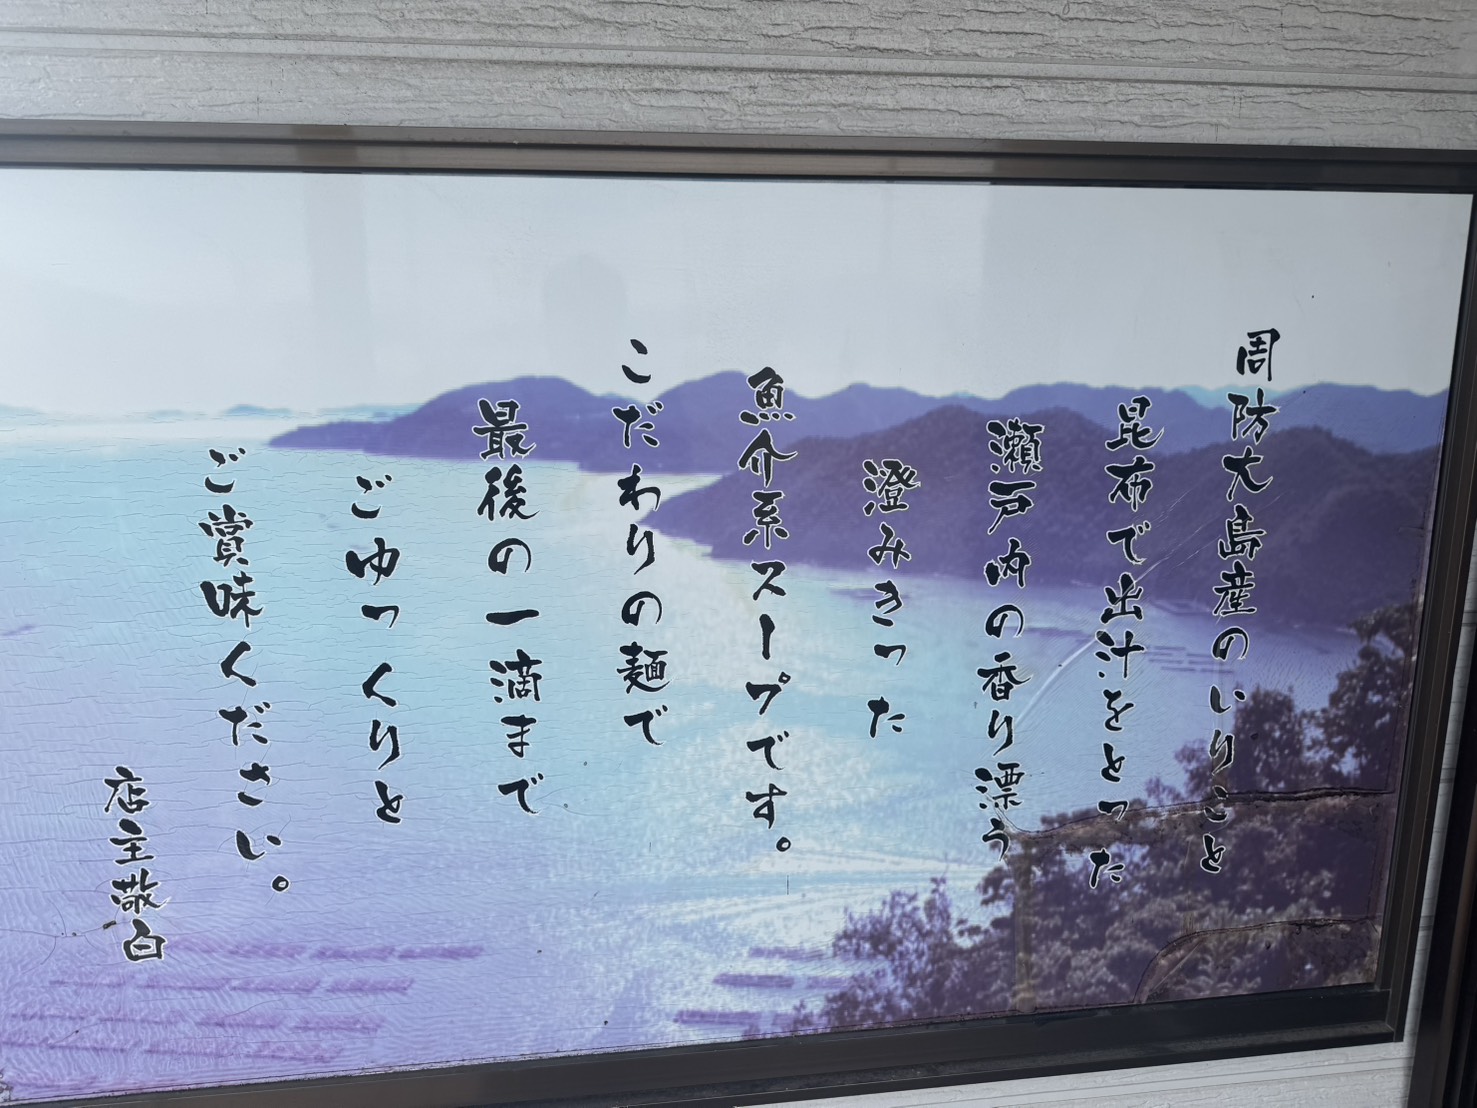 周防大島産のいりこと
昆布で出汁をとった
瀬戸内の香り漂う
澄みきった
魚介系スープです。
こだわりの麺で
最後の一滴まで
ごゆっくりと
ご賞味ください。
店主敬白